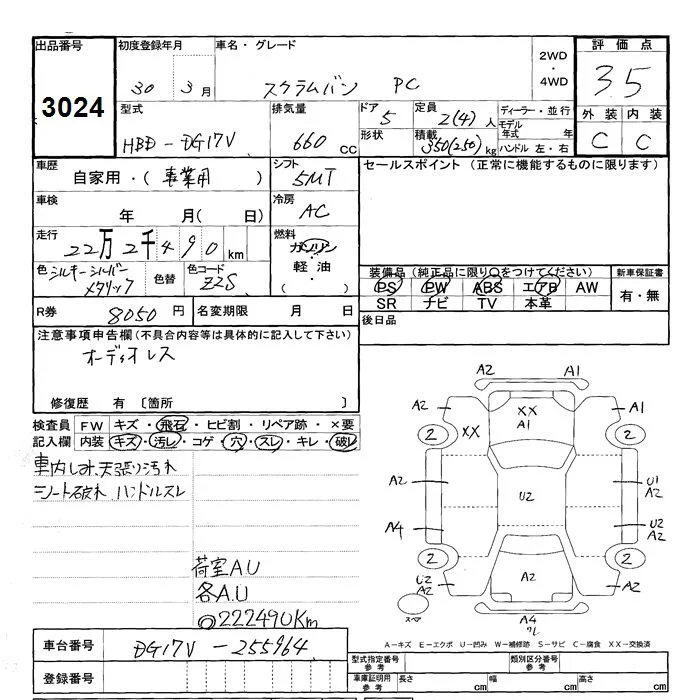 出品番号
3024
初度登録年月
30 3月
車名・グレード
スクラムバン PC
2WD
・
4WD
評価点
3.5
型式
HBD-DG17V
排気量
660 cc
ドア
5
形状
定員
2(4)人
積載
350(250)kg
ディーラー・並行
モデル
年式 年
ハンドル 左・右
外装 内装
C C
車歴
自家用・(事業用)
シフト
5MT
セールスポイント (正常に機能するものに限ります)
車検
年 月( 日)
冷房
AC
走行
22万2千490km
燃料
ガソリン
・
軽油
・
( )
色
シルキーシルバー
メタリック
色替
色コード
Z2S
装備品(純正品に限り○をつけてください)
PS PW ABS エアB AW
SR ナビ TV 本革
新車保証書
有・無
R券 8050円
名変期限 月 日
後日品
注意事項申告欄(不具合内容等は具体的に記入して下さい)
オーディオレス
修復歴 有 〔箇所 〕
検査員
記入欄
FW キズ・飛石・ヒビ割・リペア跡・×要
内装 キズ・汚レ・コゲ・穴・スレ・キレ・破レ
車内しみ 天張り汚れ
シート破れ ハンドルスレ
荷室A.U
各A.U
◎222490Km
A2 A1
A2 XX A1
A1
2 XX 2
A2 U2 U1
A2
A4 U2
A2
2 2
U2
A2 A2 A2
スペア
A4
ワレ
A-キズ E-エクボ U-凹み W-補修跡 S-サビ C-腐食 XX-交換済
車台番号 DG17V-255964
登録番号
型式指定番号
参考
類別区分番号
参考
車庫証明用
参考
長さ cm 幅 cm 高さ cm